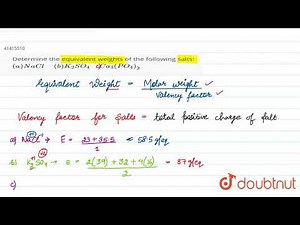 41415510
Determine the equivalent weights of the following salts:
(a)NaCl (b)K₂SO₄ c)Ca₃(PO₄)₂
Equivalent Weight = Molar weight
Valency factor
Valency factor for Salts = total positive charge of salt.
a) NaCl → E = 23+35.5 / 1 = 58.5 g/eq
b) K₂SO₄ → E = 2(39)+32+4(16) / 2 = 87 g/eq
c)
doubtnut